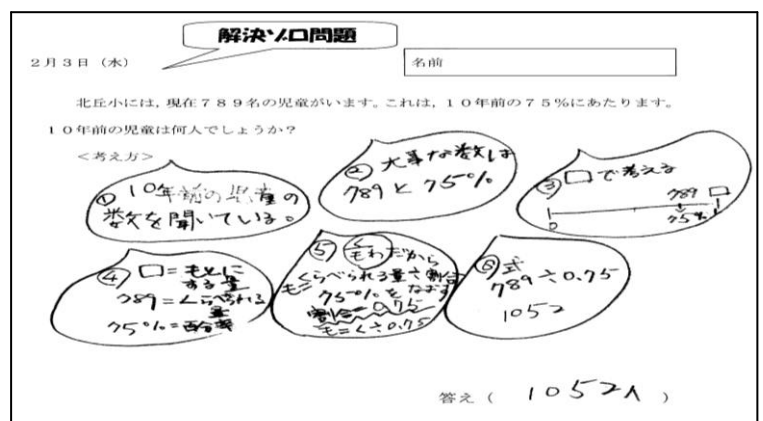 解決ゾロ問題
2月3日（水）
名前
北丘小には，現在789名の児童がいます。これは，10年前の75％にあたります。
10年前の児童は何人でしょうか？
＜考え方＞
① 10年前の児童の
数を聞いている。
② 大事な数は
789と75%
③ □で考える
789 □
0 75%
④ □＝もとに
する量
789＝くらべられる
量
75%＝百分率
⑤ くもわだから
も＝くらべられる量÷割合
75%をなおす
割合＝0.75
も＝く÷0.75
⑥ 式
789÷0.75
1052
答え（ 1052人 ）